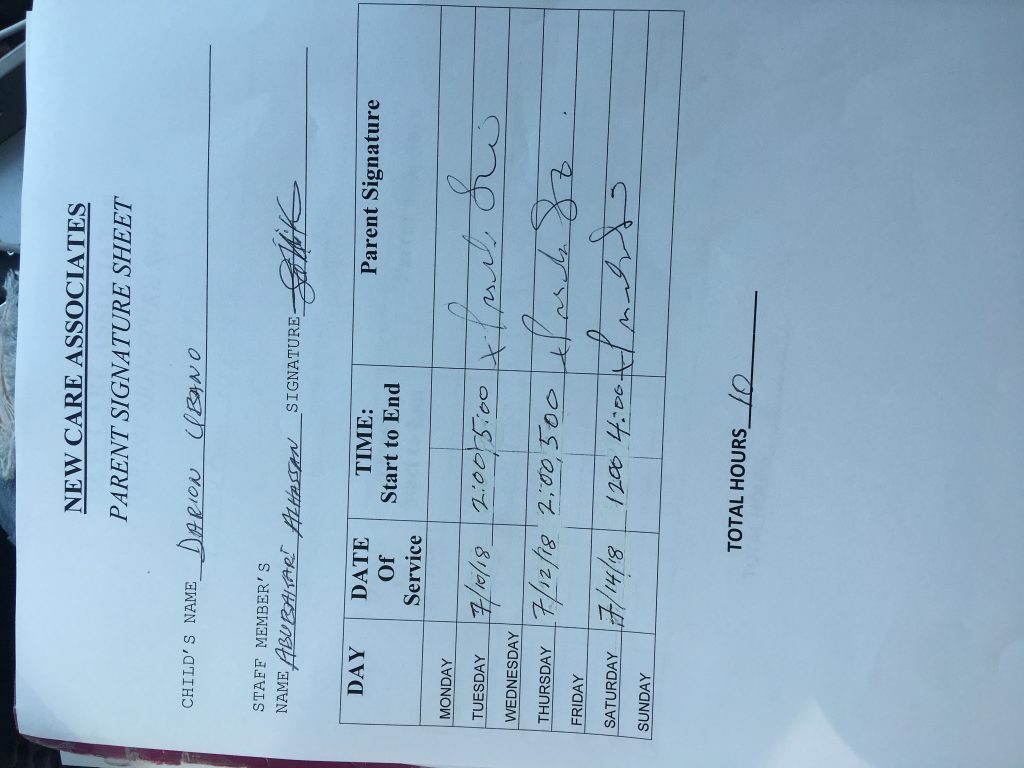 NEW CARE ASSOCIATES
PARENT SIGNATURE SHEET
CHILD'S NAME DARION URBANO
STAFF MEMBER'S
NAME ABUBAKART ALHASSAN SIGNATURE
DAY DATE Of Service TIME: Start to End Parent Signature
MONDAY
TUESDAY 7/10/18 2:00 5:00 x
WEDNESDAY
THURSDAY 7/12/18 2:00 500 x
FRIDAY
SATURDAY 7/14/18 1200 4:00 x
SUNDAY
TOTAL HOURS 10